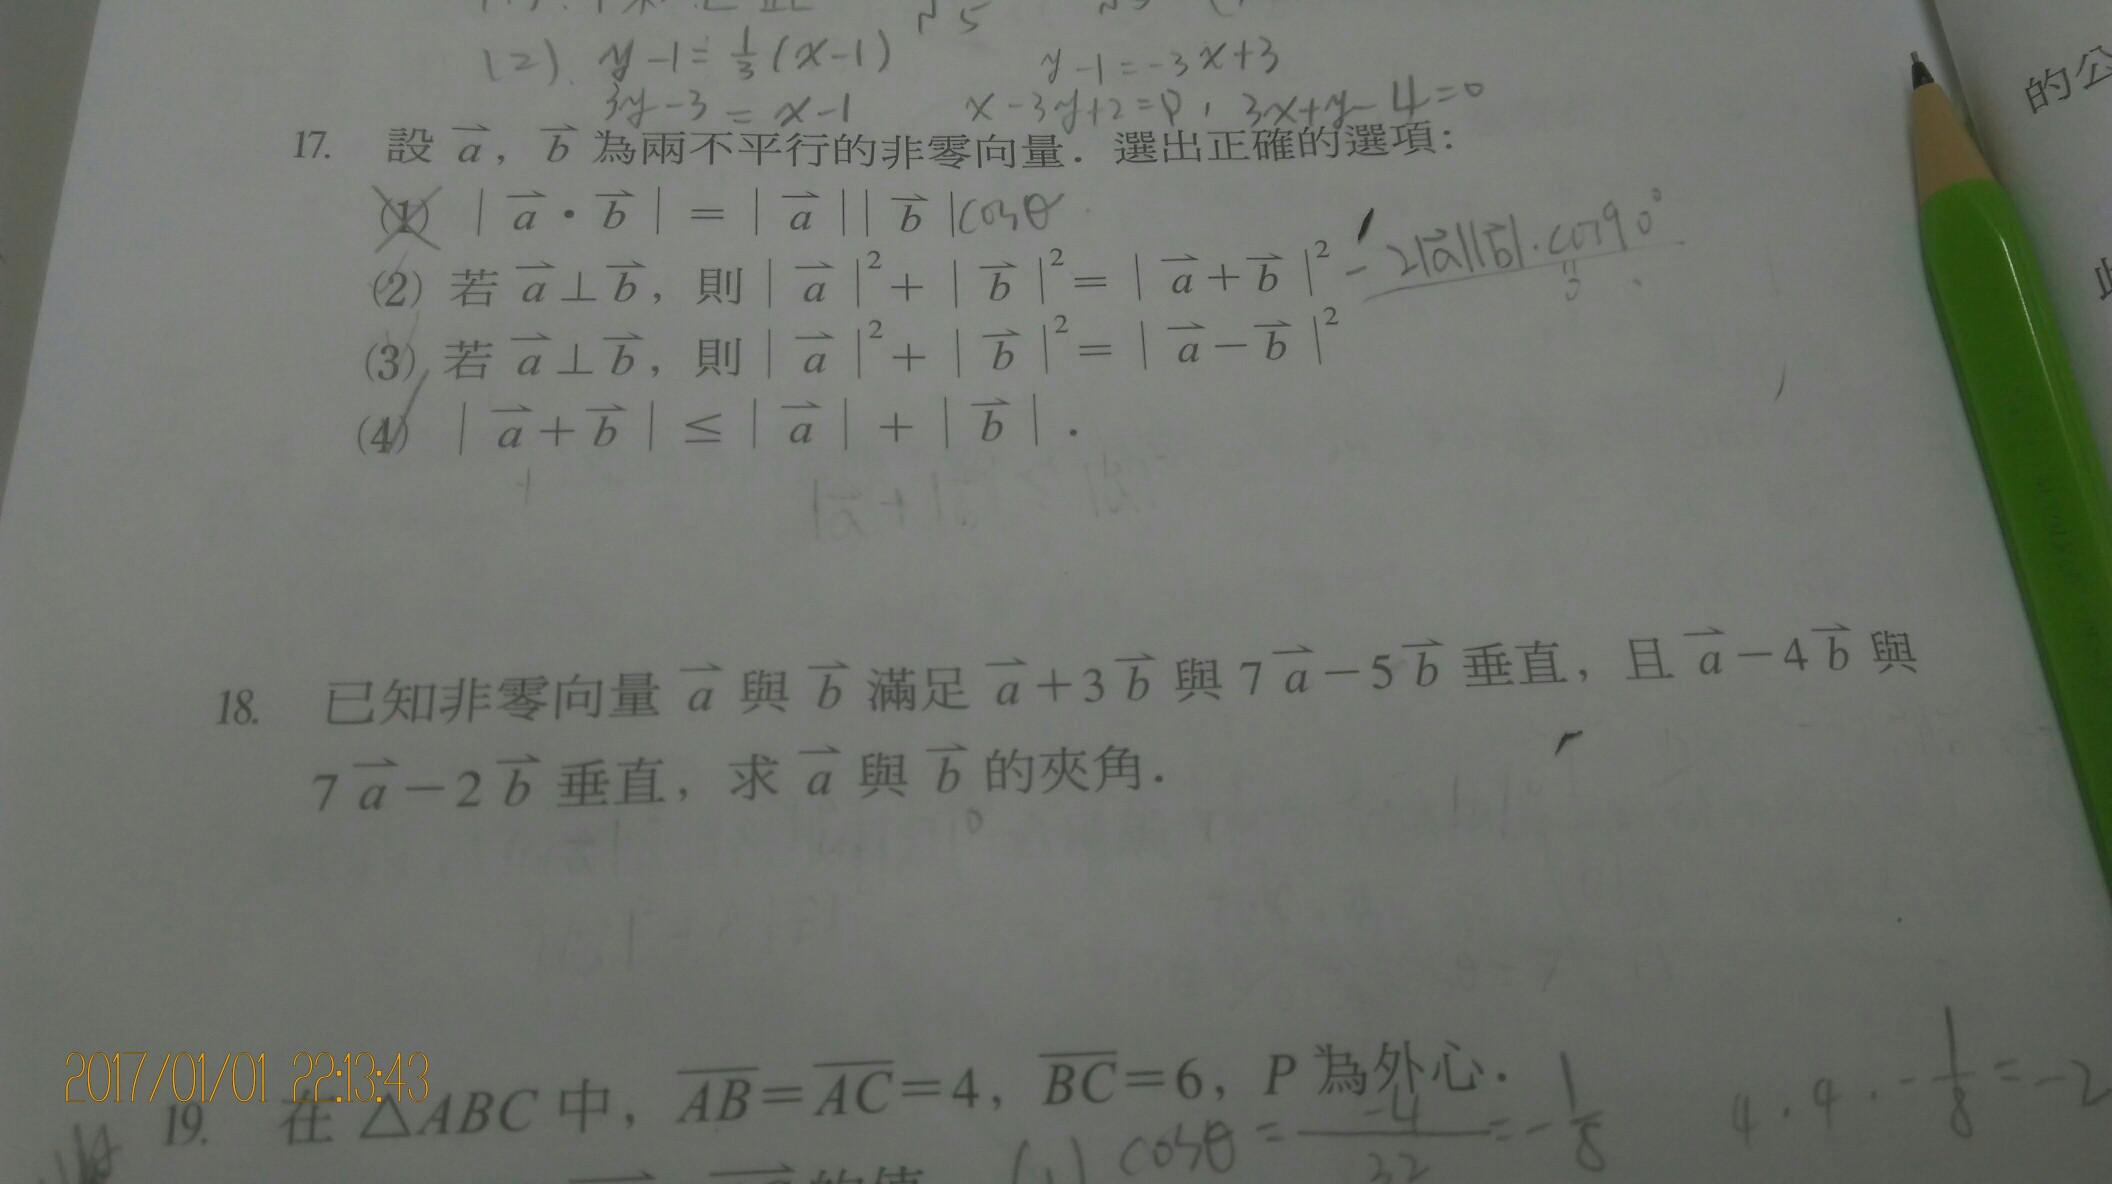 (2). y-1=1/3(x-1) y-1=-3x+3
3y-3=x-1 x-3y+2=0, 3x+y-4=0
17. 設 a⃗, b⃗ 為兩不平行的非零向量. 選出正確的選項:
(1) |a⃗·b⃗|=|a⃗||b⃗|cosθ
(2) 若 a⃗⊥b⃗, 則|a⃗|²+|b⃗|²=|a⃗+b⃗|² -2|a⃗||b⃗|·cos90°
(3) 若 a⃗⊥b⃗, 則|a⃗|²+|b⃗|²=|a⃗-b⃗|²
(4) |a⃗+b⃗|≤|a⃗|+|b⃗|.
18. 已知非零向量 a⃗ 與 b⃗ 滿足 a⃗+3b⃗ 與 7a⃗-5b⃗ 垂直, 且 a⃗-4b⃗ 與
7a⃗-2b⃗ 垂直, 求 a⃗ 與 b⃗ 的夾角.
2017/01/01 22:13:43
19. 在 △ABC 中, AB=AC=4, BC=6, P 為外心.
(1) cosθ=-4/32=-1/8 4·4·-1/8=-2
的公